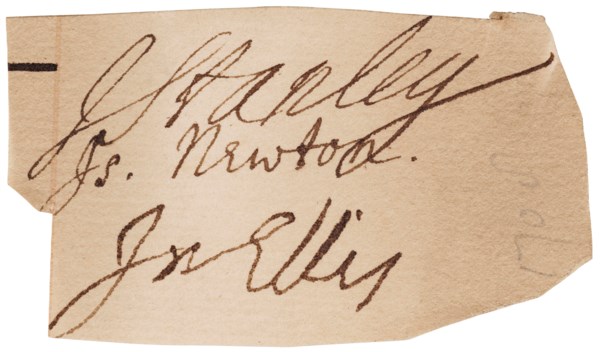 J Stanley
Js. Newton.
Jn Ellis
1700